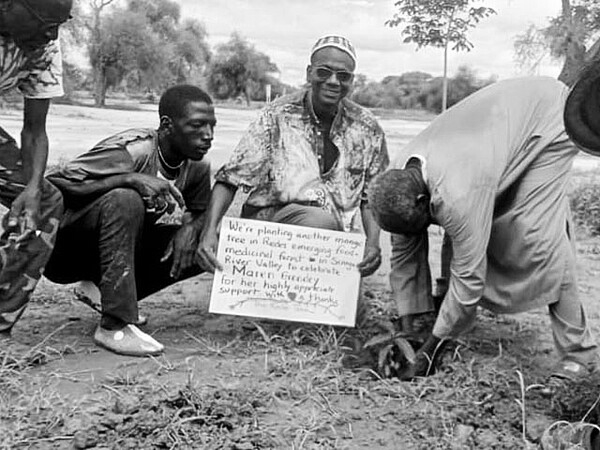 We're planting another mango
tree in Redes emerging food-
medicinal forest in Senegal
River Valley to celebrate
Maren
for her highly appreciate
support with ♥ & thanks